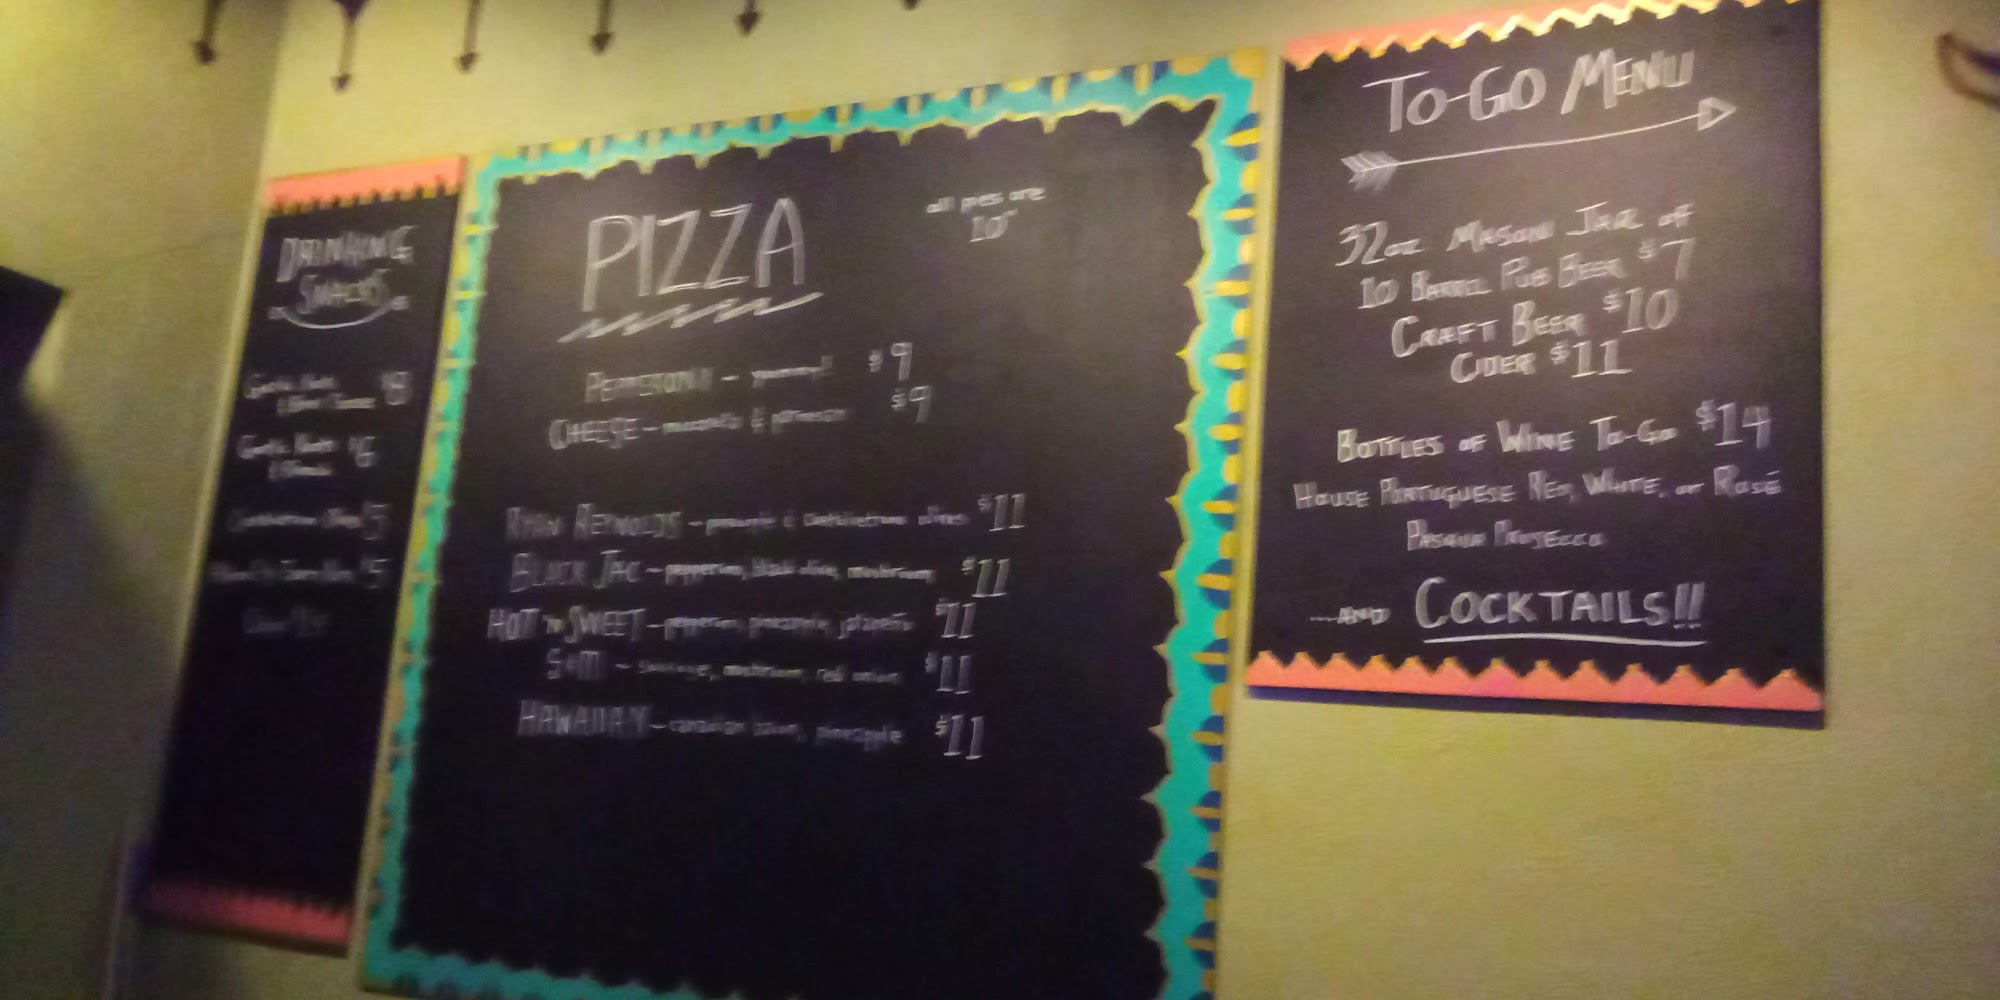 DRINKING
SNACKS
$8
$6
$5
$5
PIZZA
all pies are
10"
PEPPERONI - yummy! $9
CHEESE - & $9
RYAN REYNOLDS - pineapple & Castelvetrano olives $11
BLACK JAC - pepperoni, black olive, mushroom $11
HOT 'n SWEET - pepperoni, pineapple, jalapeño $11
- sausage, mushroom, red onion $11
HAWAIIAN - canadian bacon, pineapple $11
TO-GO MENU
32oz MASON JAR of
10 BARREL PUB BEER $7
CRAFT BEER $10
CIDER $11
BOTTLES of WINE TO-GO $14
HOUSE PORTUGUESE RED, WHITE, or ROSÉ
PASQUA PROSECCO
...AND COCKTAILS!!